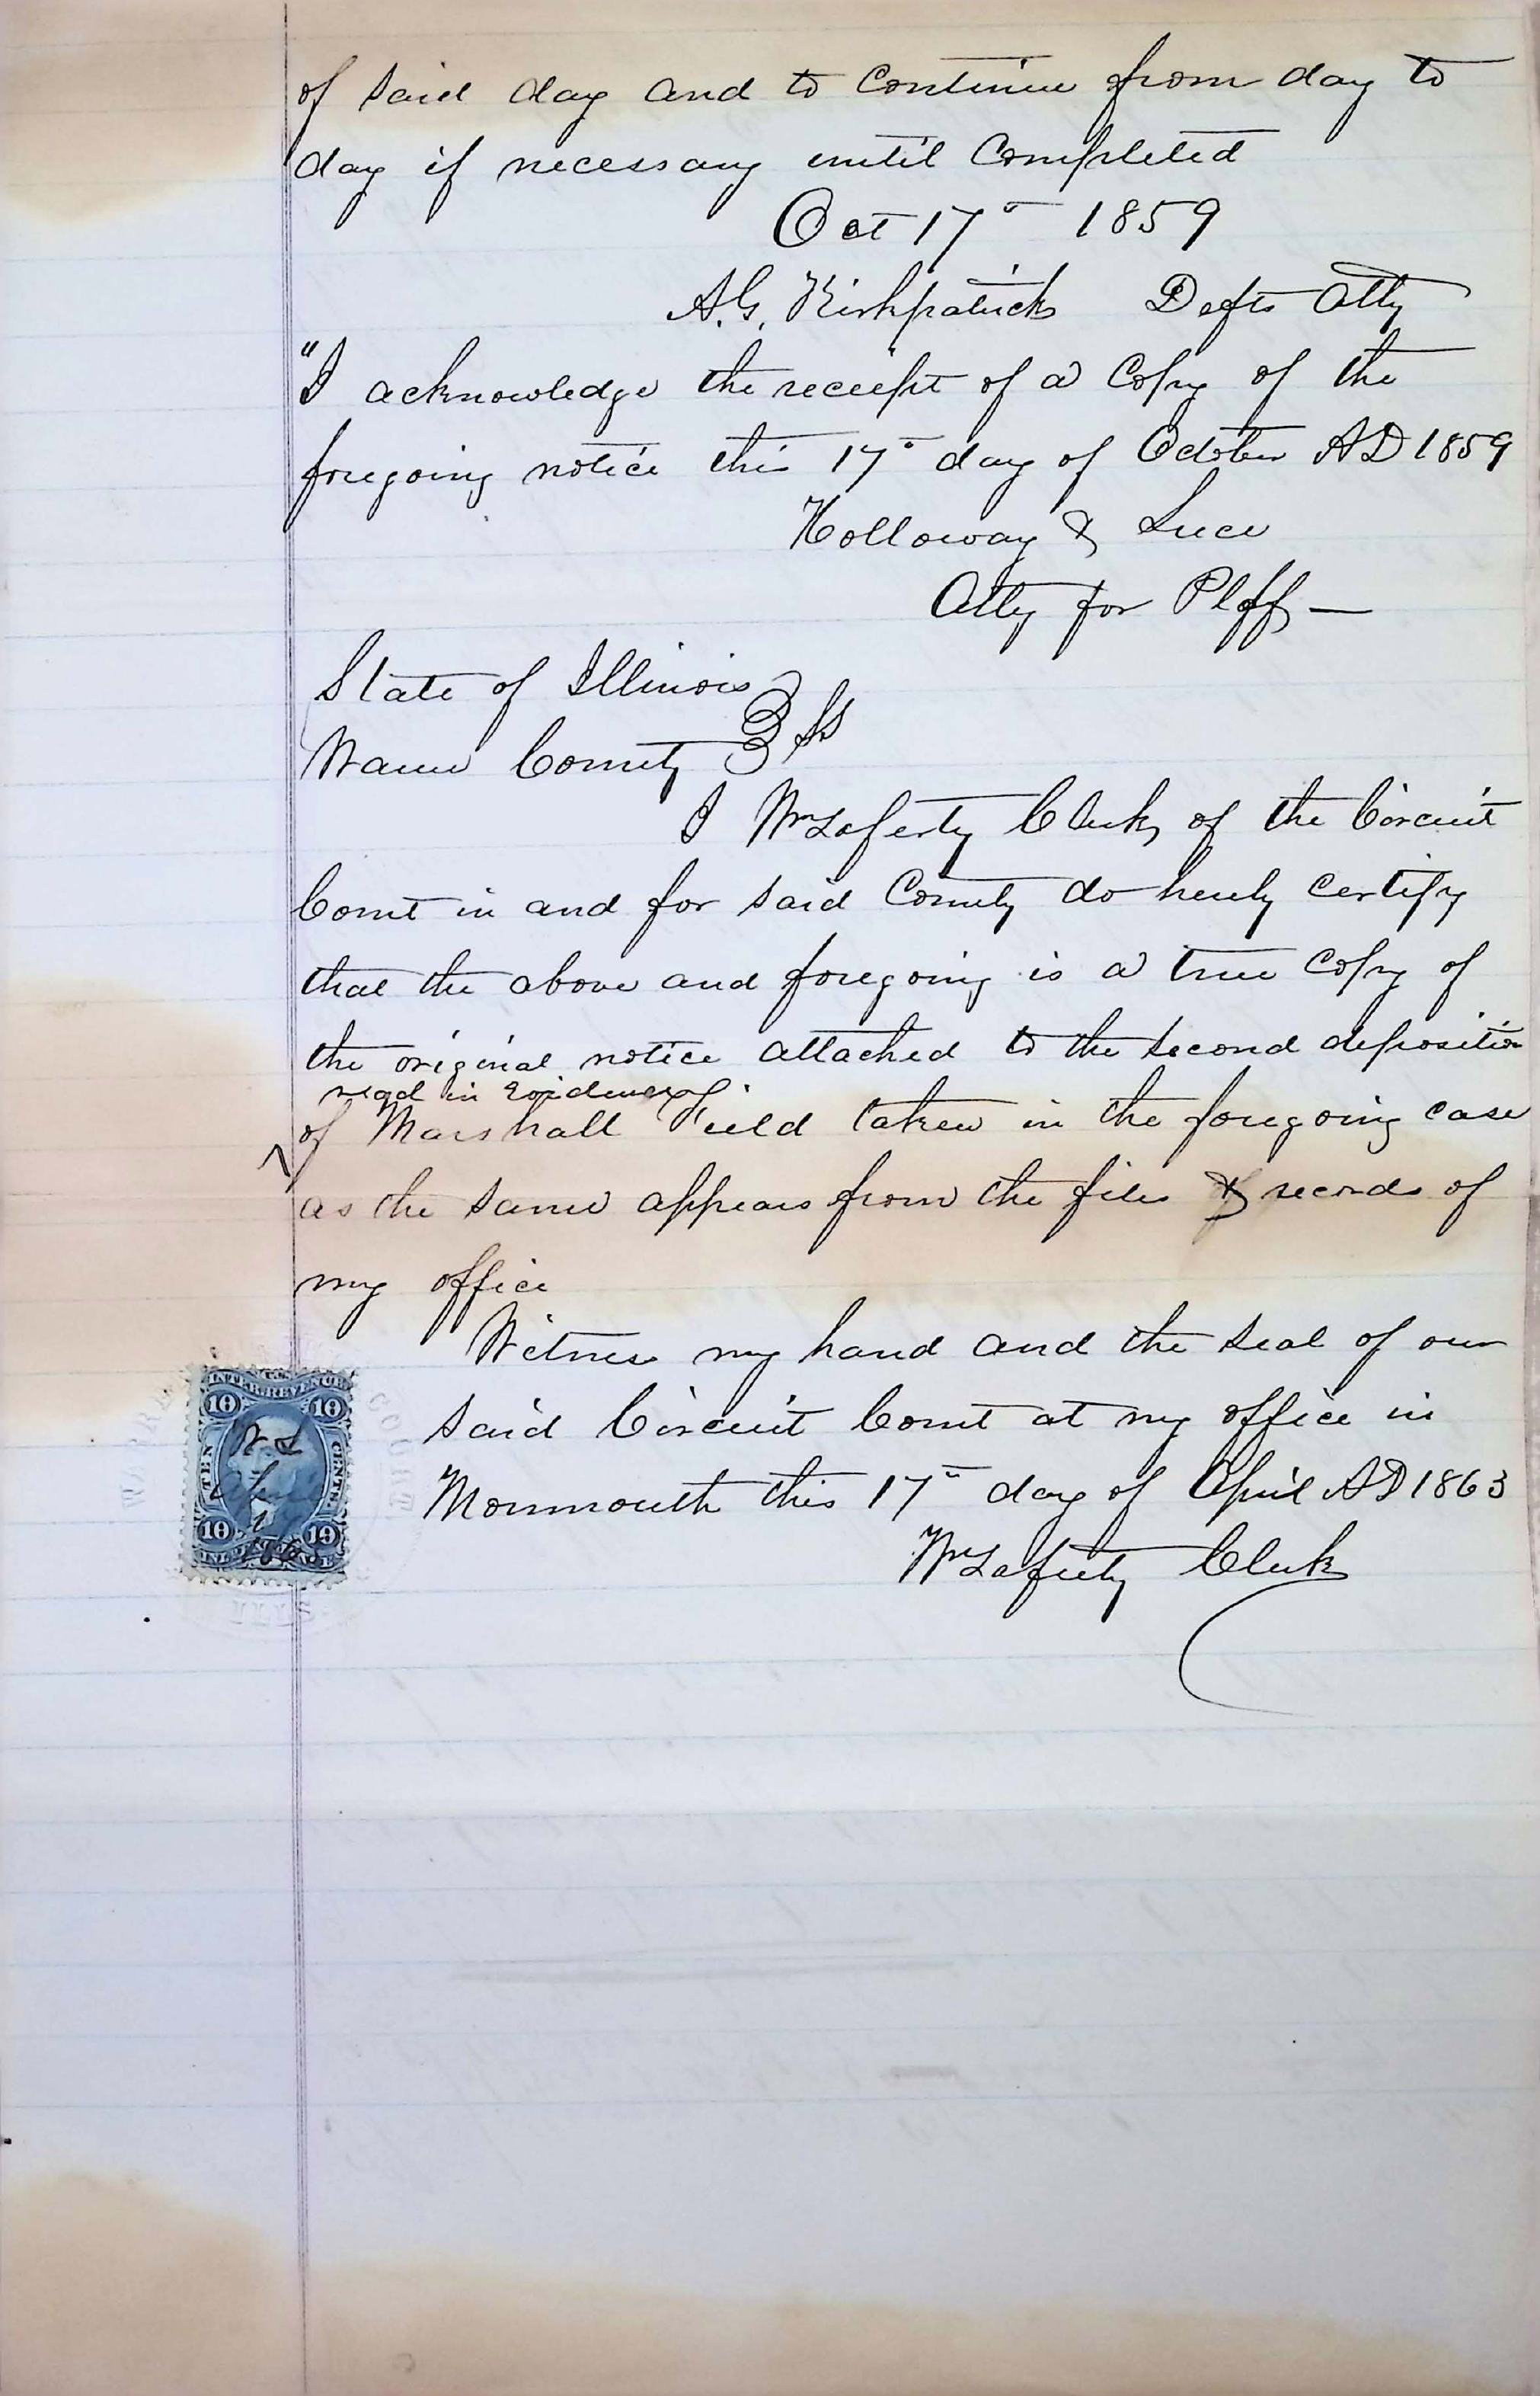 of said day and to continue from day to
day if necessary until completed
Oct 17" 1859
A.G. Kirkpatrick Defts Atty
"I acknowledge the receipt of a Copy of the
foregoing notice this 17" day of October AD 1859
Holloway & Luce
Atty for Plff —
State of Illinois
Warren County } ss
I Wm Laferty Clerk of the Circuit
Court in and for said County do hereby certify
that the above and foregoing is a true copy of
the original notice attached to the second deposition
read in Evidence
of Marshall Field taken in the foregoing case
as the same appears from the files & records of
my office
Witness my hand and the seal of our
said Circuit Court at my office in
Monmouth this 17" day of April AD 1863
Wm Laferty Clerk
U.S.
INTER. REVENUE
10 10
TEN CENTS
W L
April
10 10
WARREN COURT
ILLS